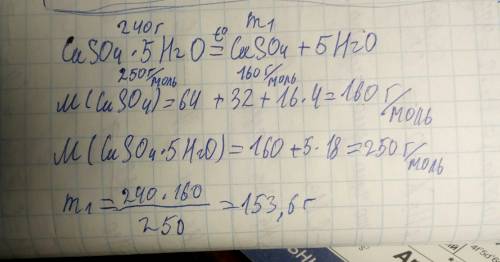 240г m₁
CuSO4·5H2O =t°= CuSO4 + 5H2O
250г/моль 160г/моль
M(CuSO4)=64 +32+16·4=160г/моль
M(CuSO4·5H2O)=160+5·18=250г/моль
m₁ = 240·160/250 =153,6г